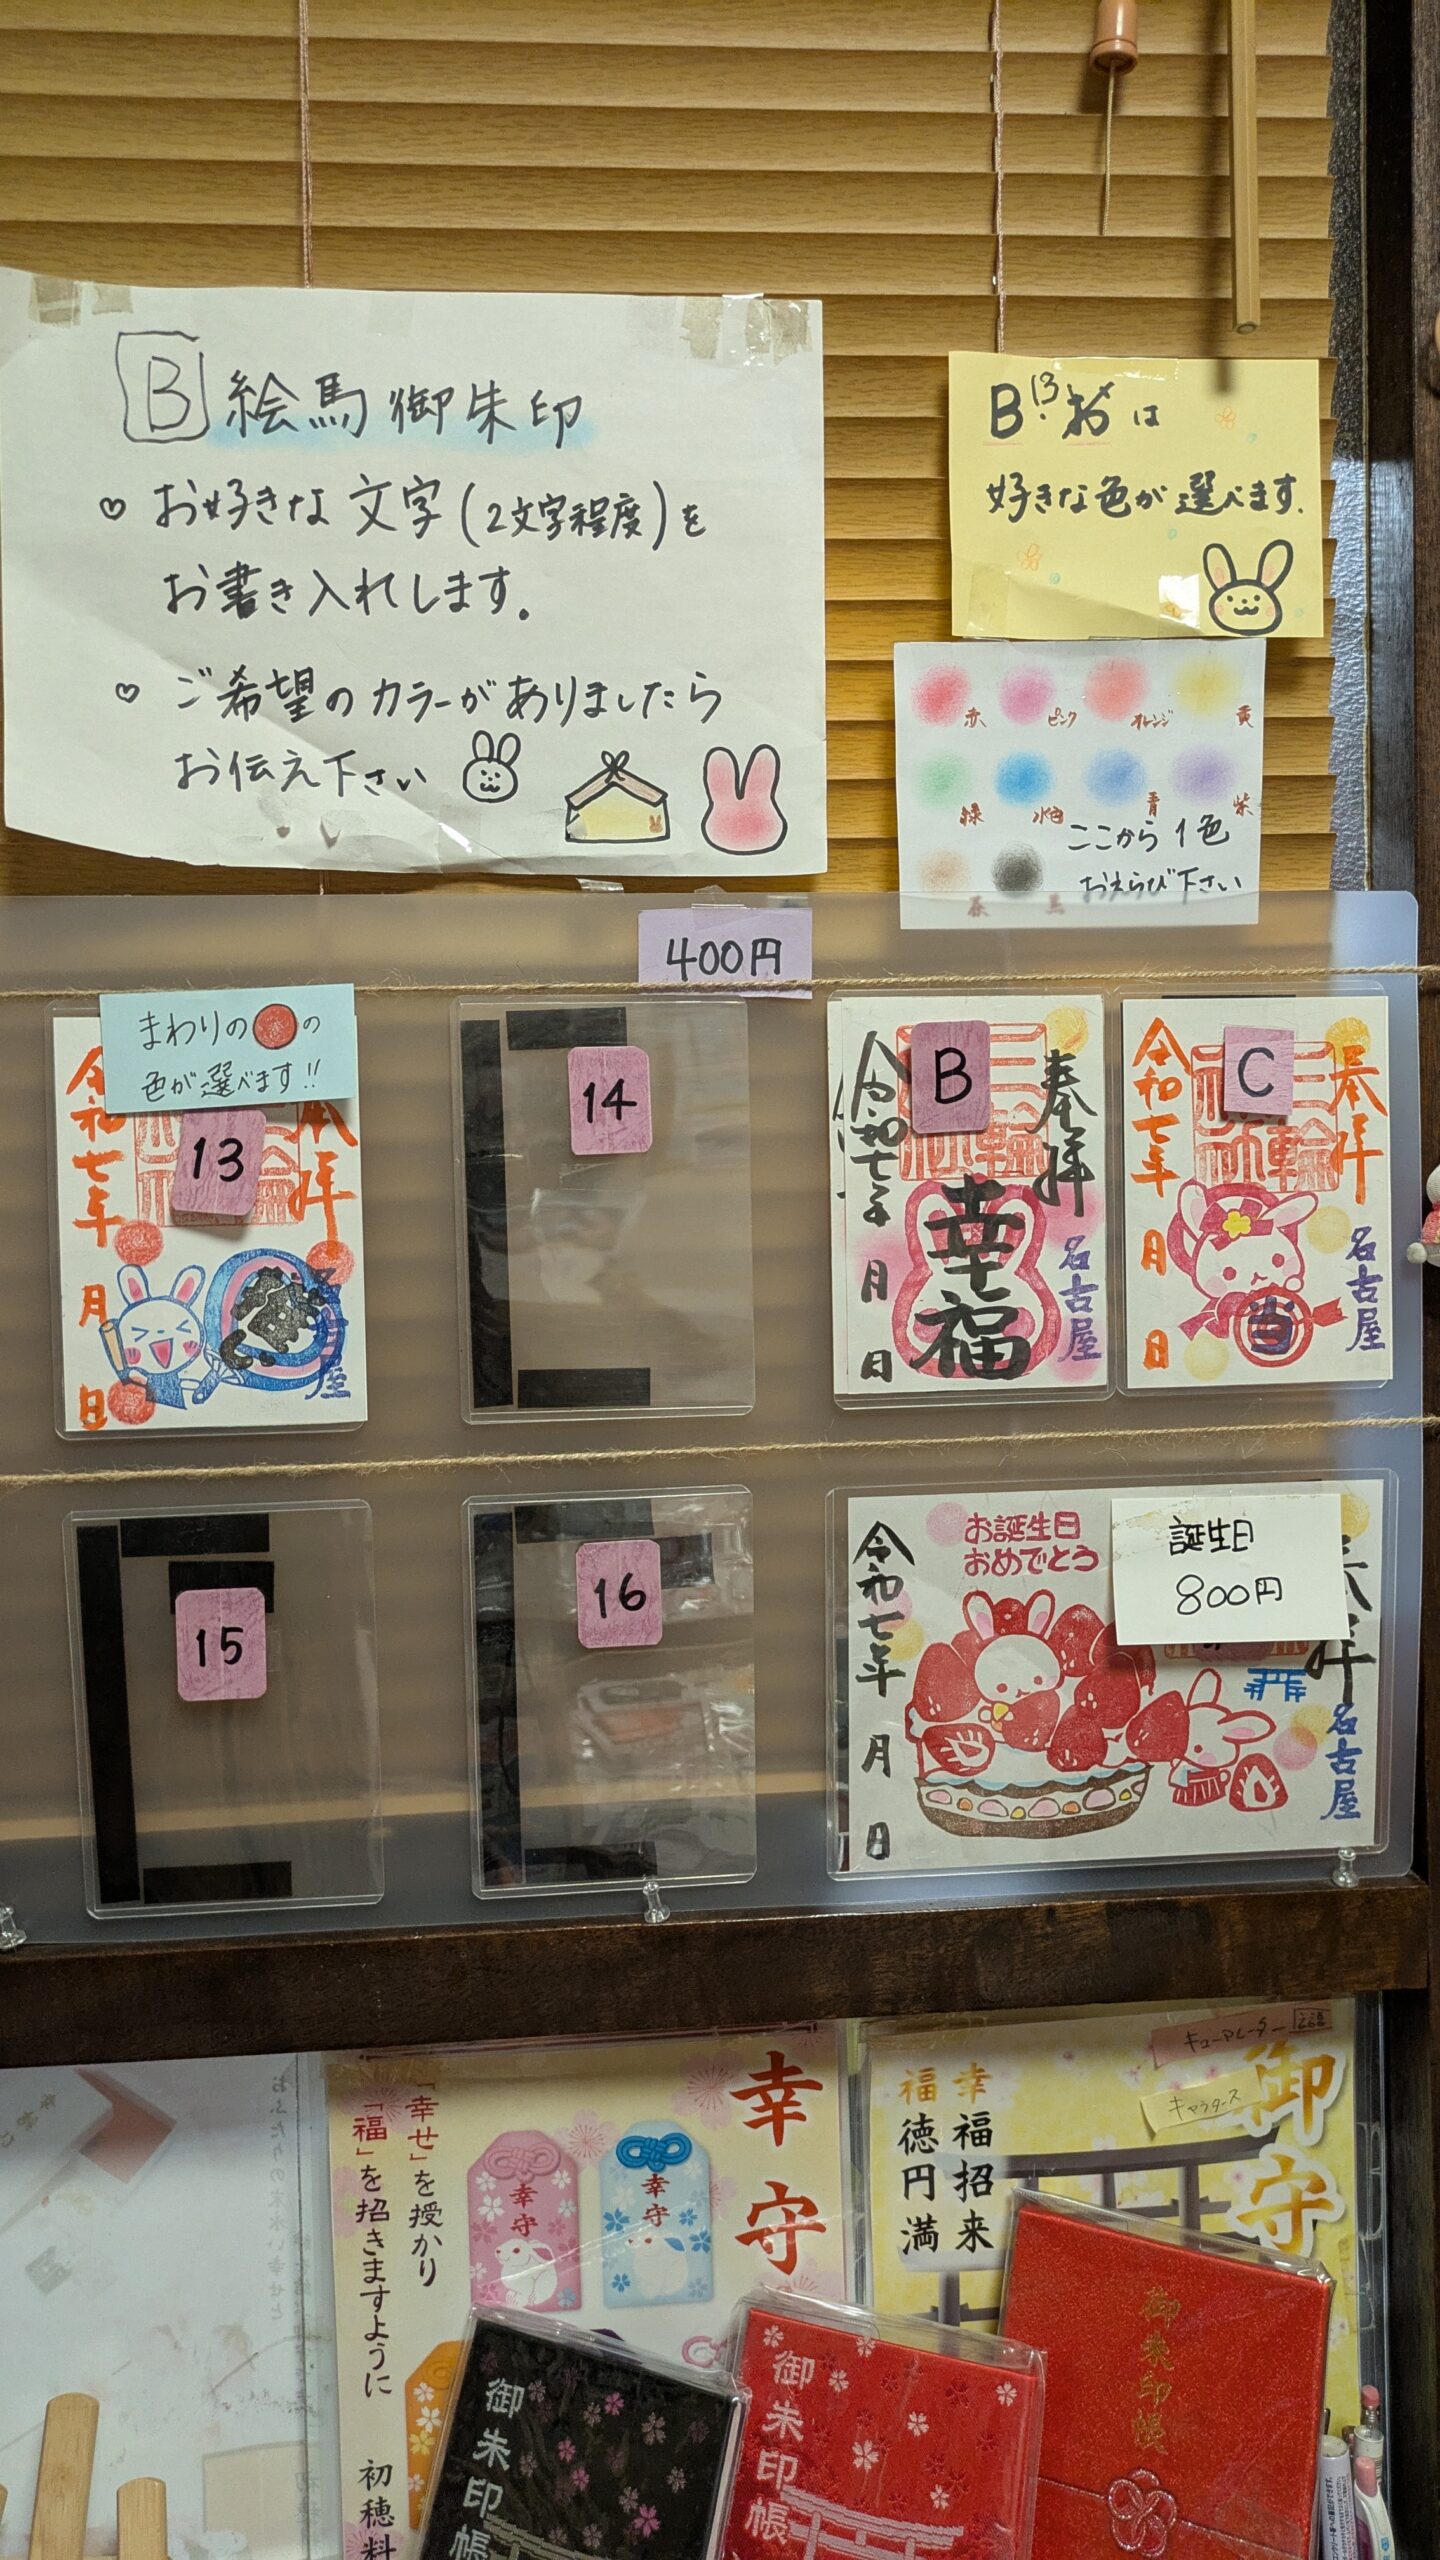 B 絵馬御朱印
♡ お好きな文字(2文字程度)を
お書き入れします。
♡ ご希望のカラーがありましたら
お伝え下さい
B・13 は
好きな色が選べます.
赤 ピンク オレンジ 黄
緑 水色 青 紫
茶 黒
ここから1色
おえらび下さい
400円
まわりの●の
色が選べます!!
13
奉拝
令和七年
月
日
名古屋
14
B
奉拝
三輪
幸福
令和七年
月
日
名古屋
C
奉拝
三輪
当
令和七年
月
日
名古屋
15
16
お誕生日
おめでとう
誕生日
800円
奉拝
令和七年
月
日
名古屋
幸守
「幸せ」を授かり
「福」を招きますように
初穂料
幸守
幸守
キューアレーター
キャラクタース
御守
幸福招来
福徳円満
御朱印帳
御朱印帳
御朱印帳